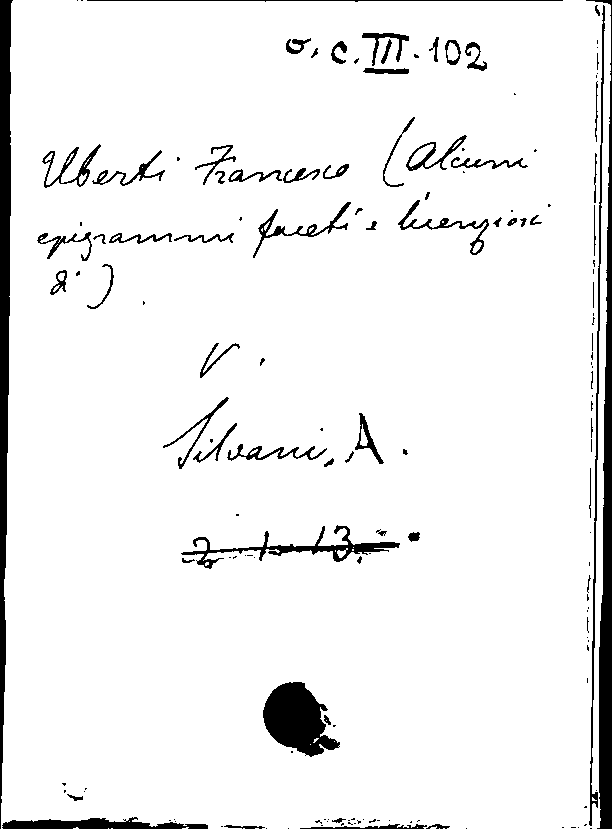 o. c. III. 102
Uberti Francesco (Alcuni
epigrammi faceti e licenziosi
di)
V.
Silvani, A.
2 1 13.